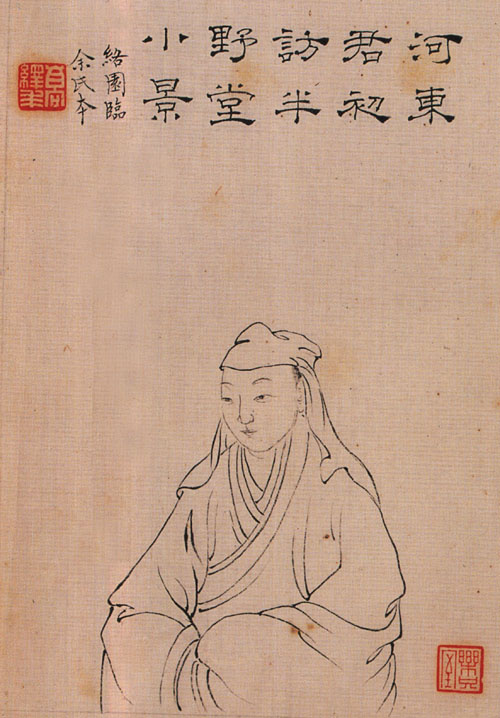 河東
君初
訪半
野堂
小景
絡園臨
余氏本